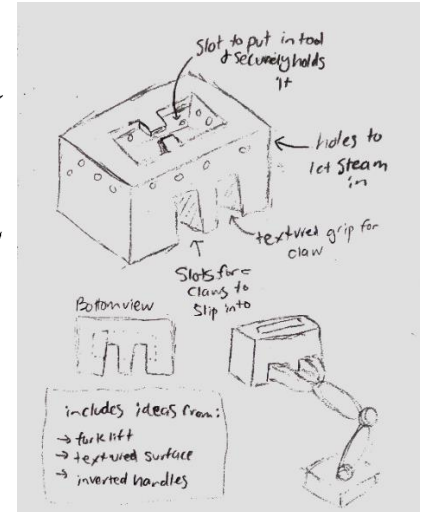 Slot to put in tool
& securely holds
it
holes to
let steam
in
textured grip for
claw
Slots for
claws to
slip into
Bottom view
includes ideas from:
→ forklift
→ textured surface
→ inverted handles